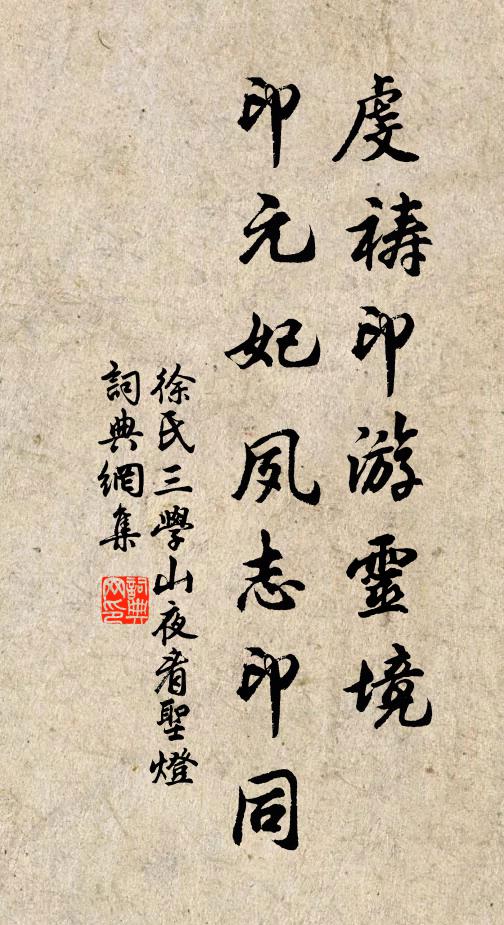 虔禱印游靈境
印元妃夙志印同
徐氏三學山夜看聖燈
詞典網集
詞典
文印